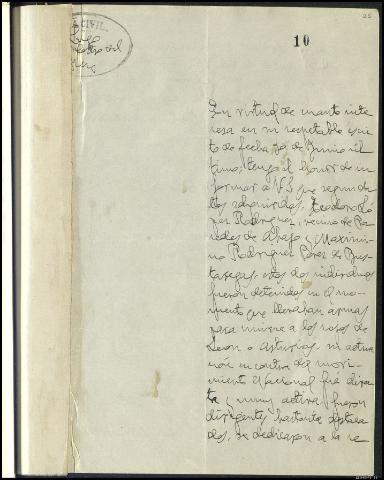 25
CIVIL.
10
En virtud de cuanto inte
resa en su respetable escri
to de fecha 29 de Junio úl
timo, tengo el honor de in
formar a V.S. que segun da
tos adquiridos, Teodoro Ló
pez Rodriguez, vecino de Pa
redes de Abajo y Maximi
no Rodriguez Perez de Bus
taregas, estos dos individuos
fueron detenidos en el mo-
mento que llevaban armas
para unirse a los rojos de
Leon o Asturias. su actua
ción en contra del movi-
miento Nacional fué direc
ta y muy activa fueron
dirigentes bastante destaca
dos, se dedicaron a la re